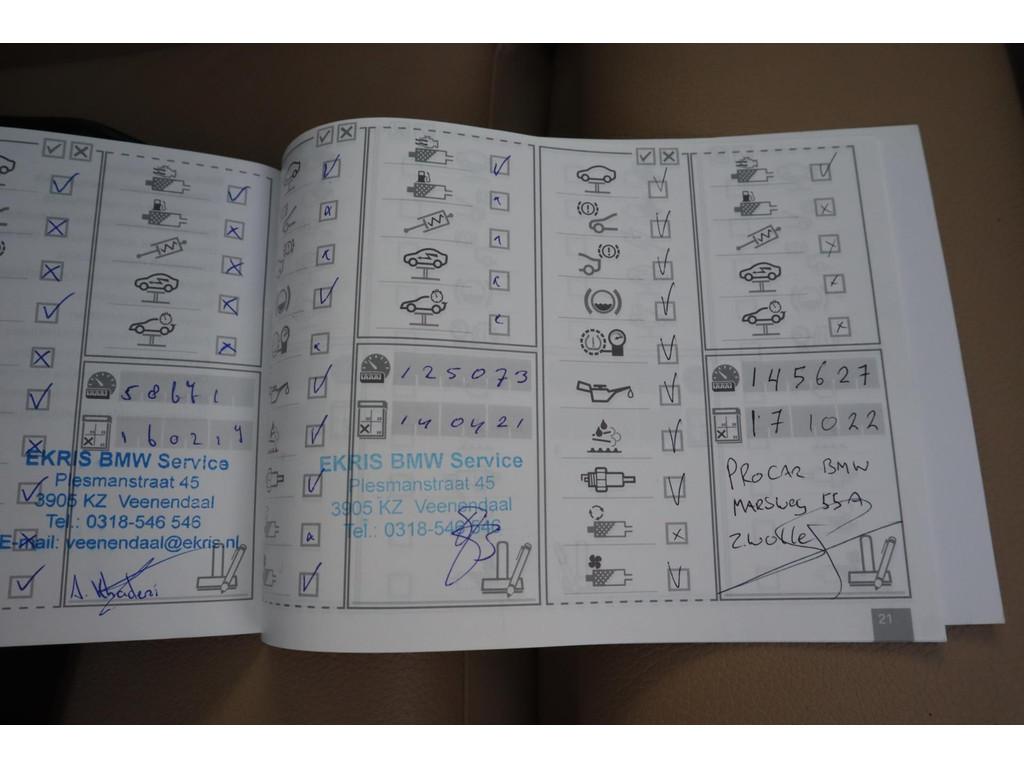 58671
160219
EKRIS BMW Service
Plesmanstraat 45
3905 KZ Veenendaal
Tel.: 0318-546 546
E-mail: veenendaal@ekris.nl
125073
140421
EKRIS BMW Service
Plesmanstraat 45
3905 KZ Veenendaal
Tel.: 0318-546 546
145627
171022
PROCAR BMW
MARSWEG 55A
ZWOLLE
21